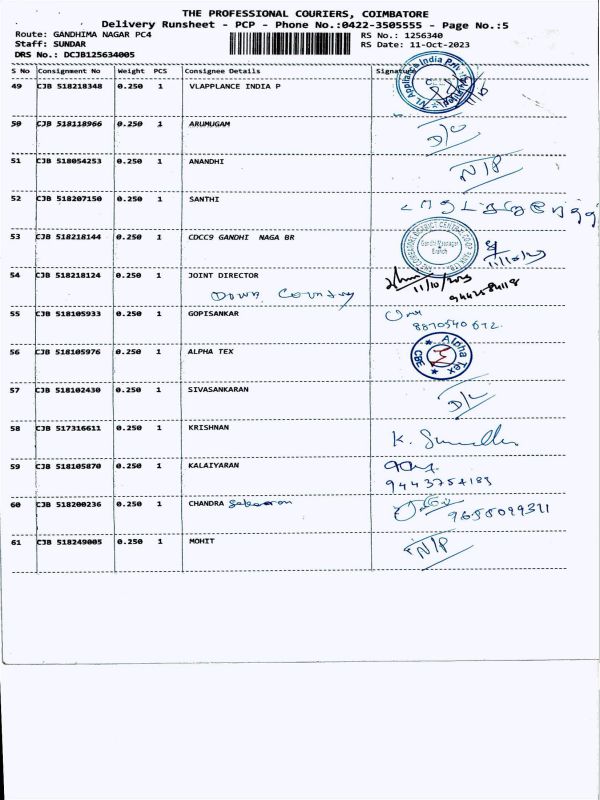 THE PROFESSIONAL COURIERS, COIMBATORE
Delivery Runsheet - PCP - Phone No.:0422-3505555 - Page No.:5
Route: GANDHIMA NAGAR PC4 RS No.: 1256340
Staff: SUNDAR RS Date: 11-Oct-2023
DRS No.: DCJB125634005
S No Consignment No Weight PCS Consignee Details Signature
49 CJB 518218348 0.250 1 VLAPPLANCE INDIA P
50 CJB 518118966 0.250 1 ARUMUGAM D/L
51 CJB 518054253 0.250 1 ANANDHI N/P
52 CJB 518207150 0.250 1 SANTHI
53 CJB 518218144 0.250 1 CDCC9 GANDHI NAGA BR 11/10/23
54 CJB 518218124 0.250 1 JOINT DIRECTOR 11/10/2023
Down Country
55 CJB 518105933 0.250 1 GOPISANKAR
8870540672.
56 CJB 518105976 0.250 1 ALPHA TEX Alpha Tex CBE
57 CJB 518102430 0.250 1 SIVASANKARAN D/L
58 CJB 517316611 0.250 1 KRISHNAN K.
59 CJB 518105870 0.250 1 KALAIYARAN
60 CJB 518200236 0.250 1 CHANDRA
61 CJB 518249005 0.250 1 MOHIT N/P